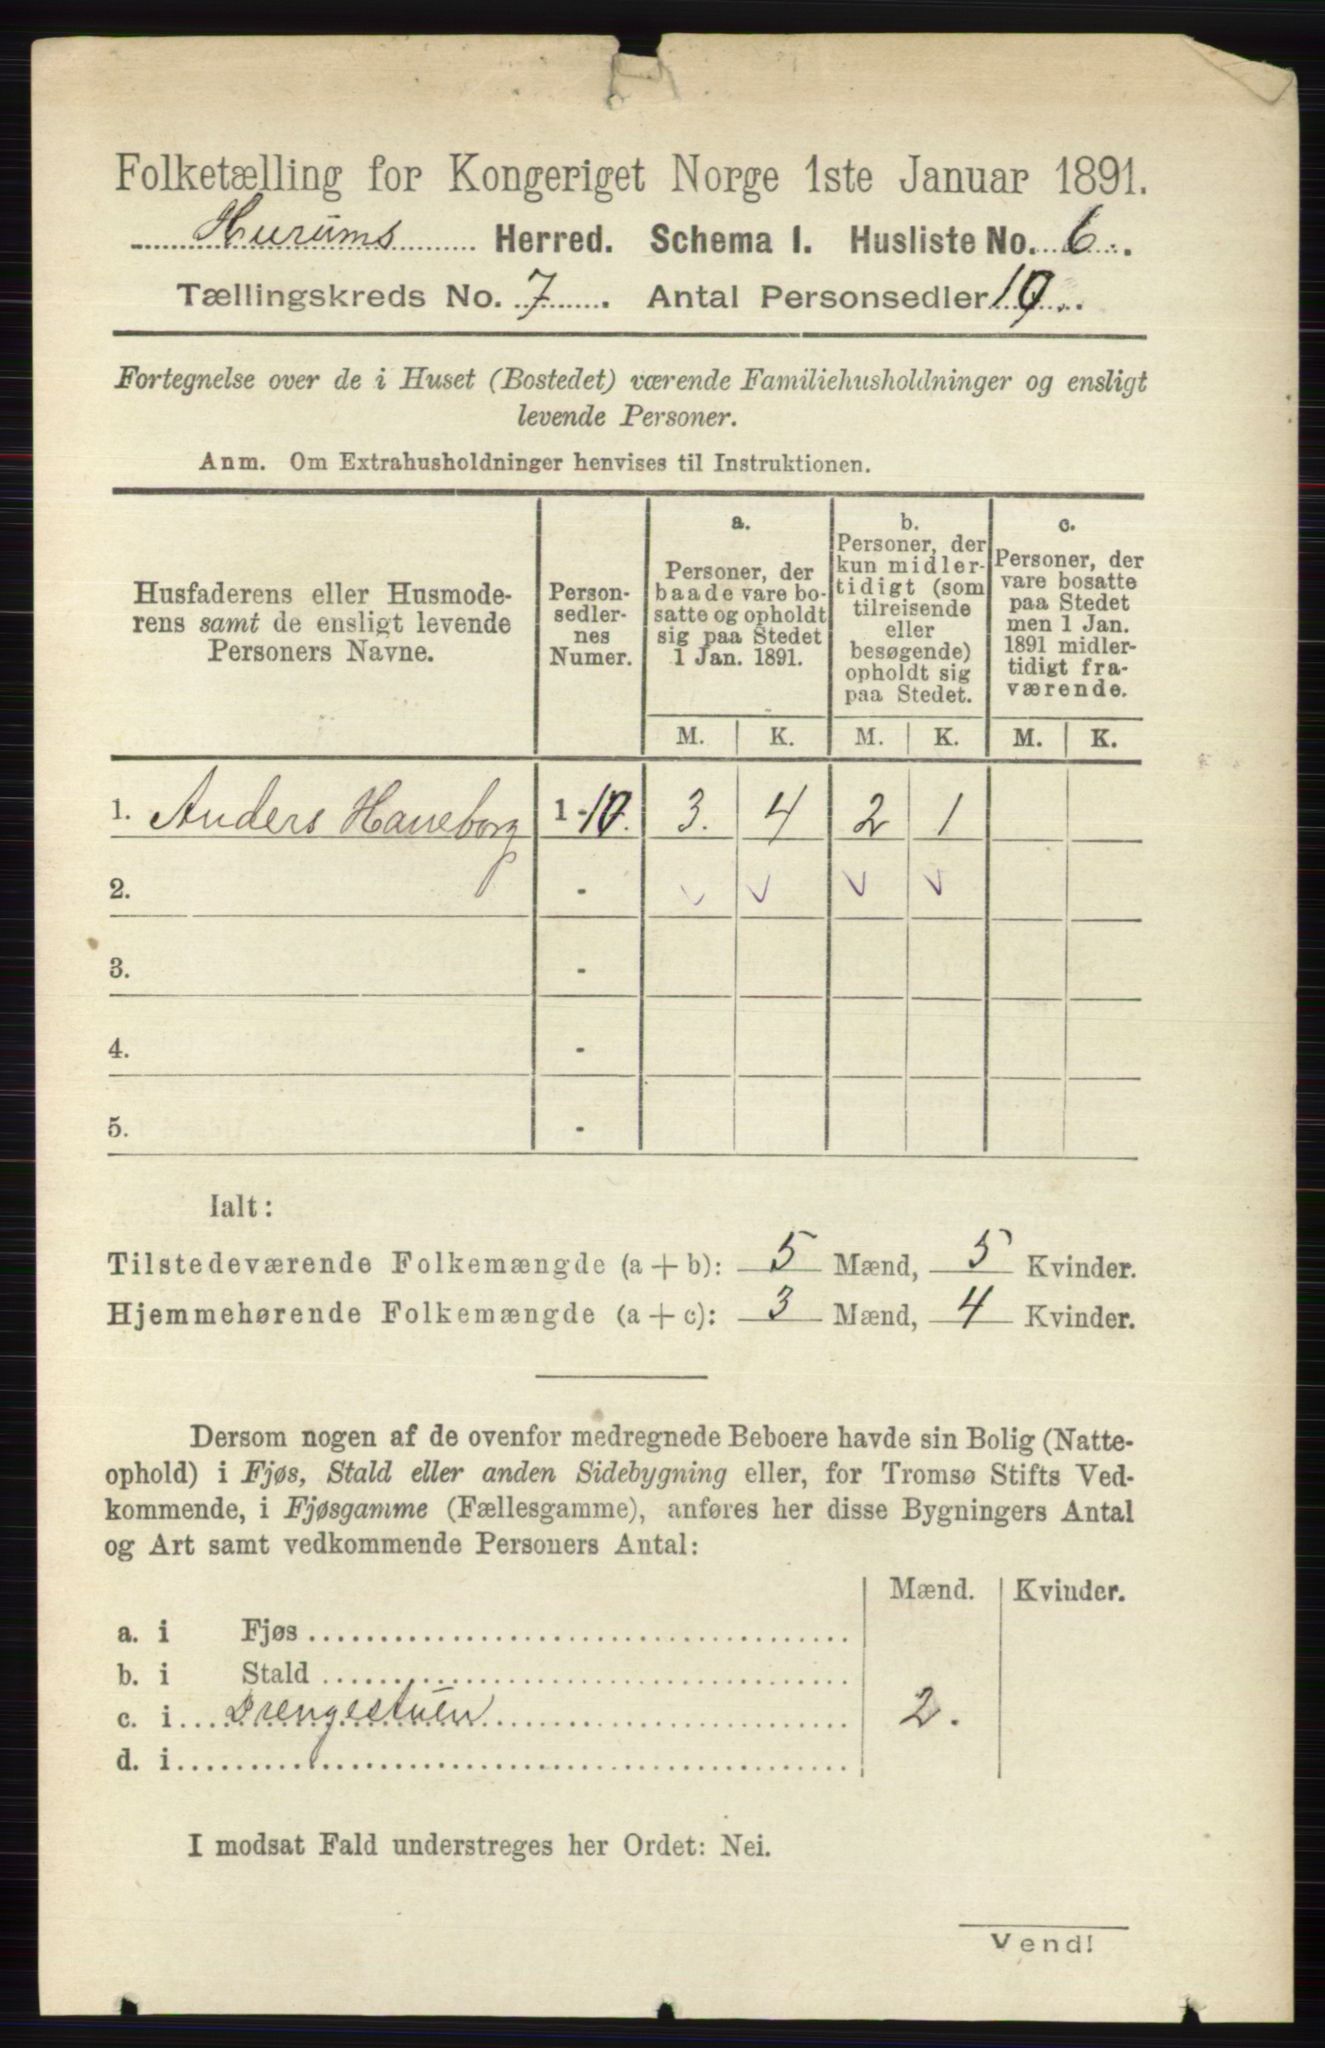 Folketælling for Kongeriget Norge 1ste Januar 1891.
Hurums Herred. Schema 1. Husliste No. 6.
Tællingskreds No. 7. Antal Personsedler 10.
Fortegnelse over de i Huset (Bostedet) værende Familiehusholdninger og ensligt
levende Personer.
Anm. Om Extrahusholdninger henvises til Instruktionen.
Husfaderens eller Husmode-
rens samt de ensligt levende
Personers Navne.
Person-
sedler-
nes
Numer.
a.
Personer, der
baade vare bo-
satte og opholdt
sig paa Stedet
1 Jan. 1891.
b.
Personer, der
kun midler-
tidigt (som
tilreisende
eller
besøgende)
opholdt sig
paa Stedet.
c.
Personer, der
vare bosatte
paa Stedet
men 1 Jan.
1891 midler-
tidigt fra-
værende.
M. K. M. K. M. K.
1. Anders Haneborg 1-10. 3. 4 2 1
2. -
3. -
4. -
5. -
Ialt:
Tilstedeværende Folkemængde (a + b): 5 Mænd, 5 Kvinder.
Hjemmehørende Folkemængde (a + c): 3 Mænd, 4 Kvinder.
Dersom nogen af de ovenfor medregnede Beboere havde sin Bolig (Natte-
ophold) i Fjøs, Stald eller anden Sidebygning eller, for Tromsø Stifts Ved-
kommende, i Fjøsgamme (Fællesgamme), anføres her disse Bygningers Antal
og Art samt vedkommende Personers Antal:
Mænd. Kvinder.
a. i Fjøs
b. i Stald
c. i Drengestuen 2.
d. i
I modsat Fald understreges her Ordet: Nei.
Vend!